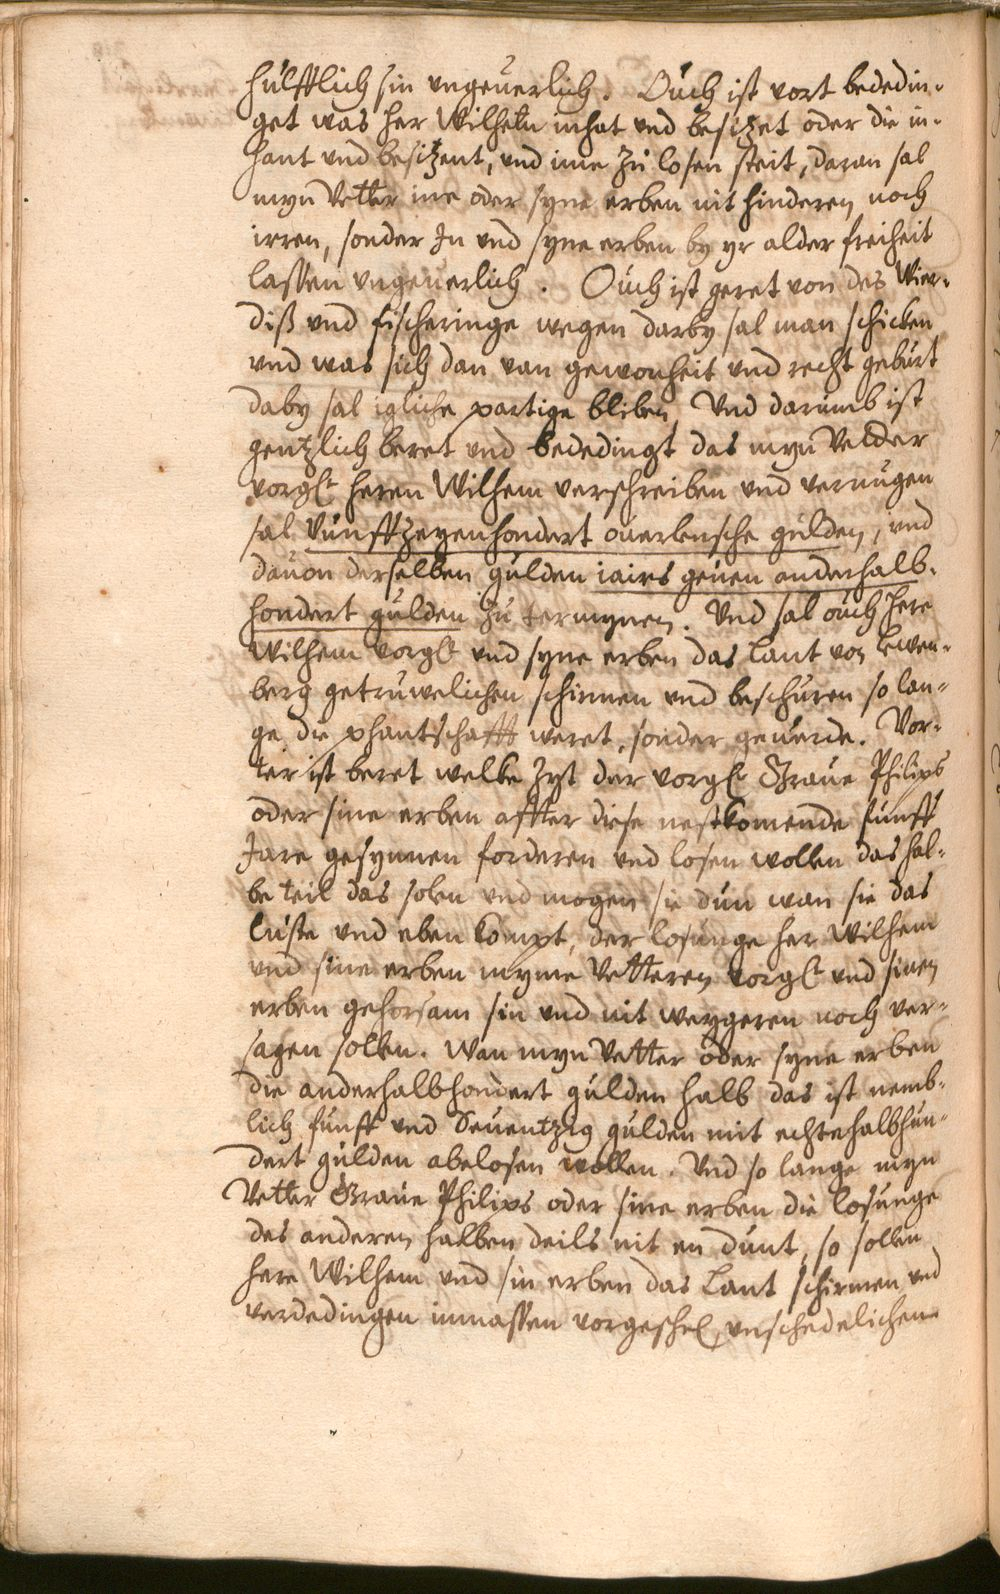 hulfflich sin vngeuerlich. Ouch ist vort bededin-
get was her Wilhelm inhat vnd besitzet oder die in-
hant vnd besitzent, vnd ime zu losen steit, daran sal
myn Vetter ine oder syne erben nit hinderen noch
irren, sonder In vnd syne erben by yr alder freiheit
lassen vngeuerlich. Ouch ist geret von des Wier-
diß vnd fischeringe wegen darby sal man schicken
vnd was sich dan van gewonheit vnd recht geburt
daby sal igliche partige bliben Vnd darumb ist
gentzlich beret vnd bededingt das myn Vedder
vorgt heren Wilhem verschreiben vnd vernugen
sal Vunffzeyenhondert ouerlensche gulden, vnd
dauon derselben gulden iairs geuen anderhalb-
hondert gulden zu termynen. Vnd sal ouch here
Wilhem vorgt vnd syne erben das Lant von Lewen-
berg getruwelichen schirmen vnd beschuren so lan-
ge die phantschafft weret, sonder geuerde. Vor-
ter ist beret welke zyt der vorgt Graue Philips
oder sine erben affter diese nestkomende funff
Jare gesynnen forderen vnd losen wollen das hal-
be teil das solen vnd mogen sie dun wan sie das
luste vnd eben kompt, der losunge her Wilhem
vnd sine erben myme Vetteren vorgt vnd sinen
erben gehorsam sin vnd nit weygeren noch ver-
sagen sollen. Wan myn Vetter oder syne erben
die anderhalbhondert gulden halb das ist nemb-
lich funff vnd Seuentzig gulden mit echtehalbhun-
dert gulden abelosen wollen. Vnd so lange myn
Vetter Graue Philips oder sine erben die losunge
des anderen halben deils nit en dunt, so sollen
here Wilhem vnd sin erben das Lant schirmen vnd
verdedingen inmassen vorgeschr. vnschedelichen